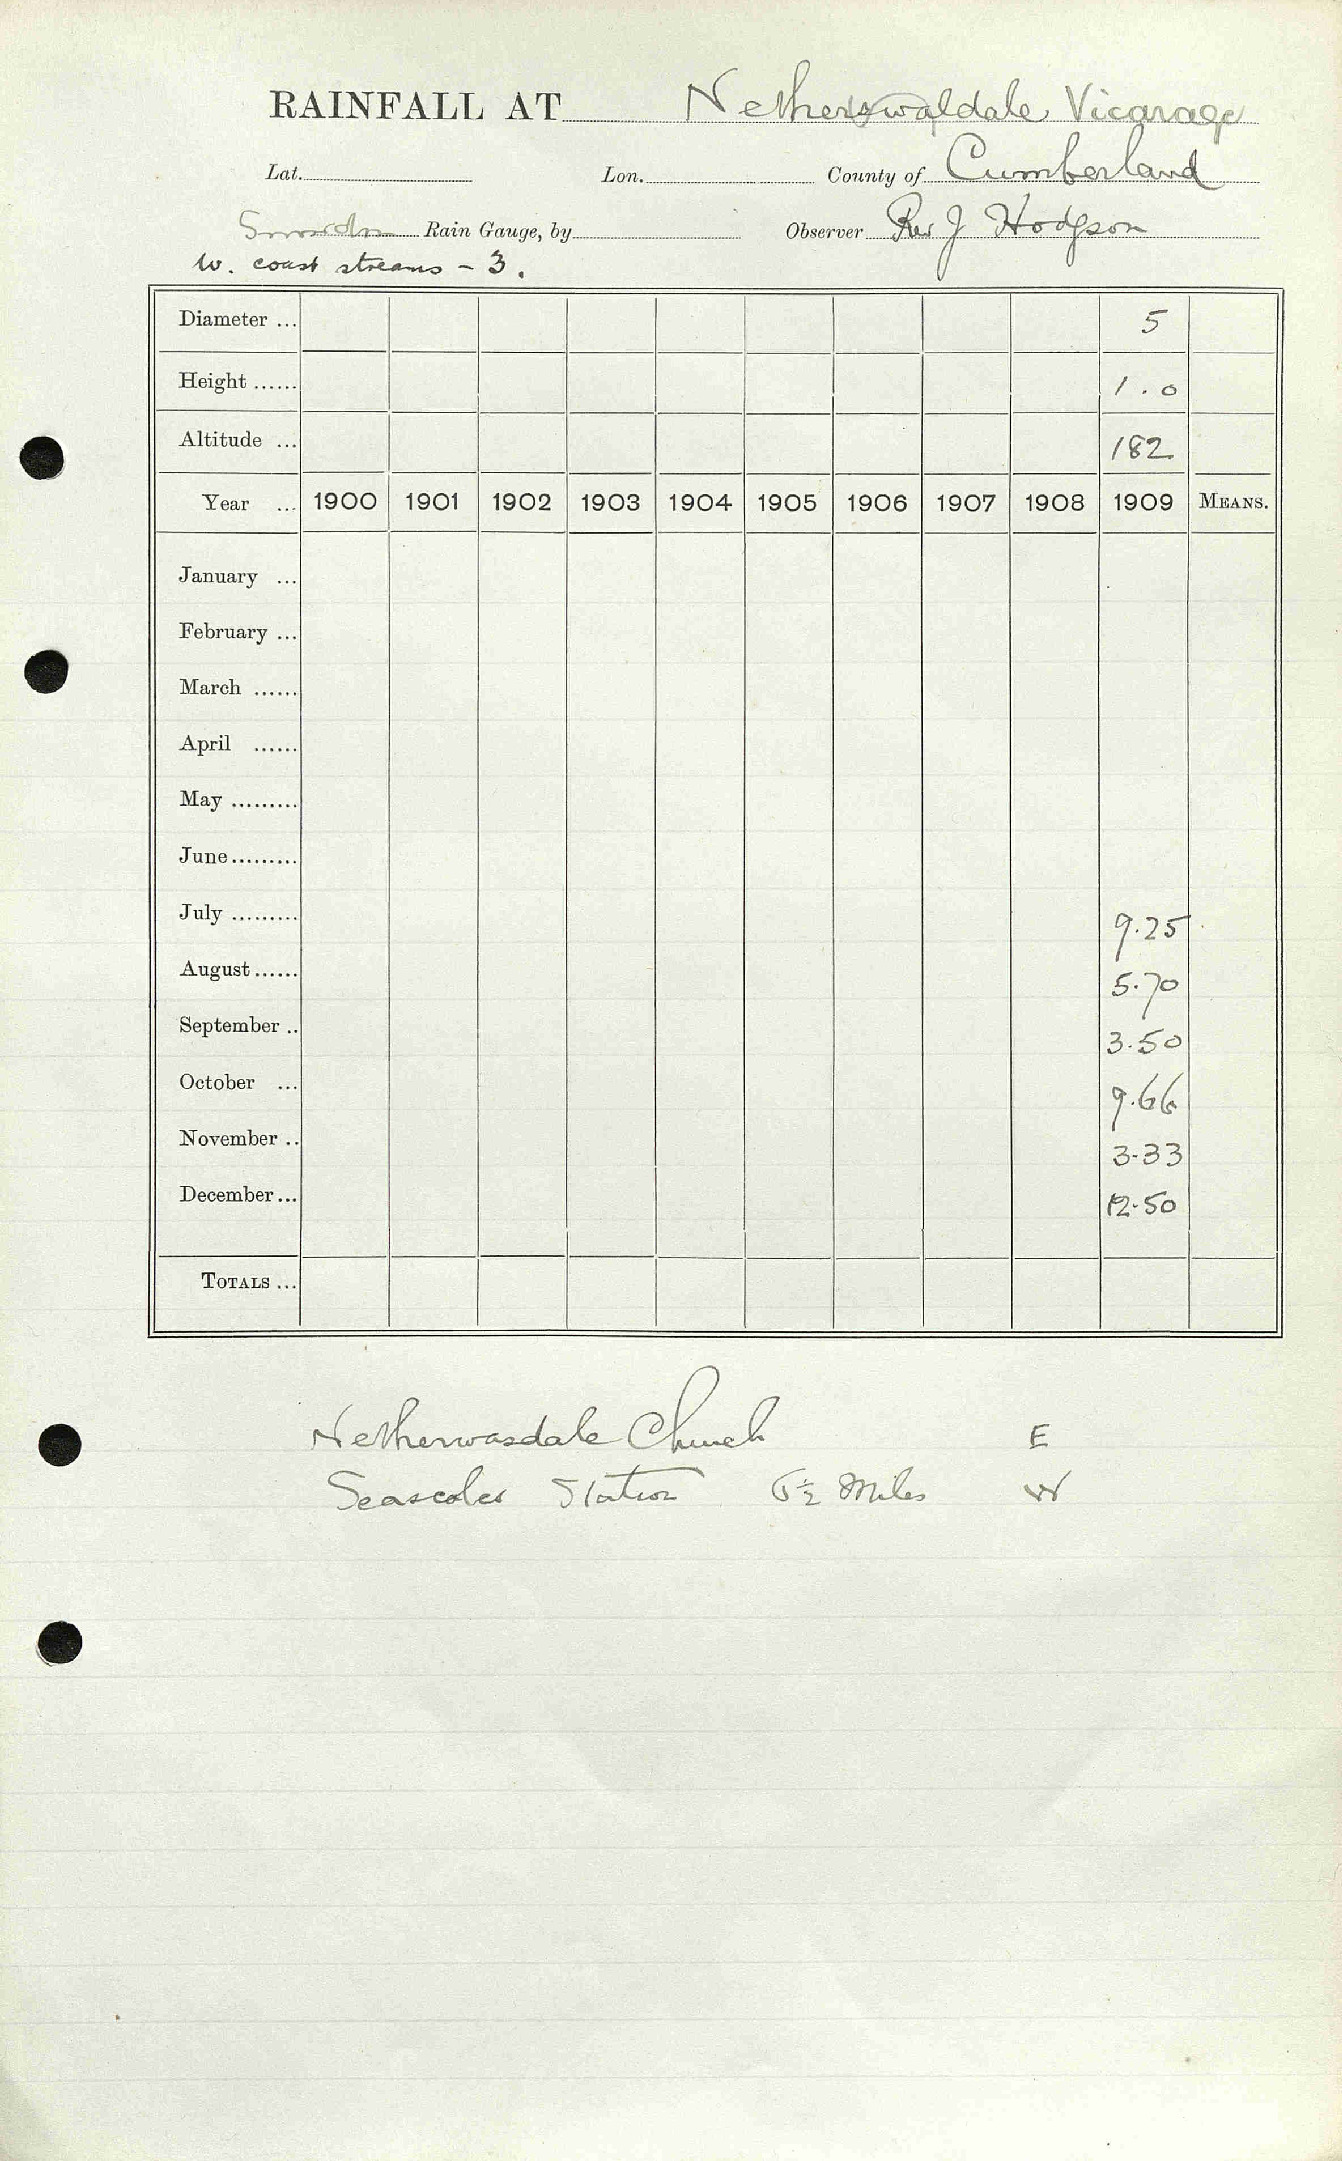 RAINFALL AT Netherswaldale Vicarage
Lat. Lon. County of Cumberland
Snowdon Rain Gauge, by Observer Rev J Hodgson
W. coast streams - 3.
Diameter ... 5
Height ...... 1.0
Altitude ... 182
Year ... 1900 1901 1902 1903 1904 1905 1906 1907 1908 1909 MEANS.
January ...
February ...
March ......
April ......
May .........
June.........
July ......... 9.25
August...... 5.70
September .. 3.50
October ... 9.66
November .. 3.33
December... 12.50
TOTALS ...
Netherwasdale Church E
Seascales Station 6½ Miles W